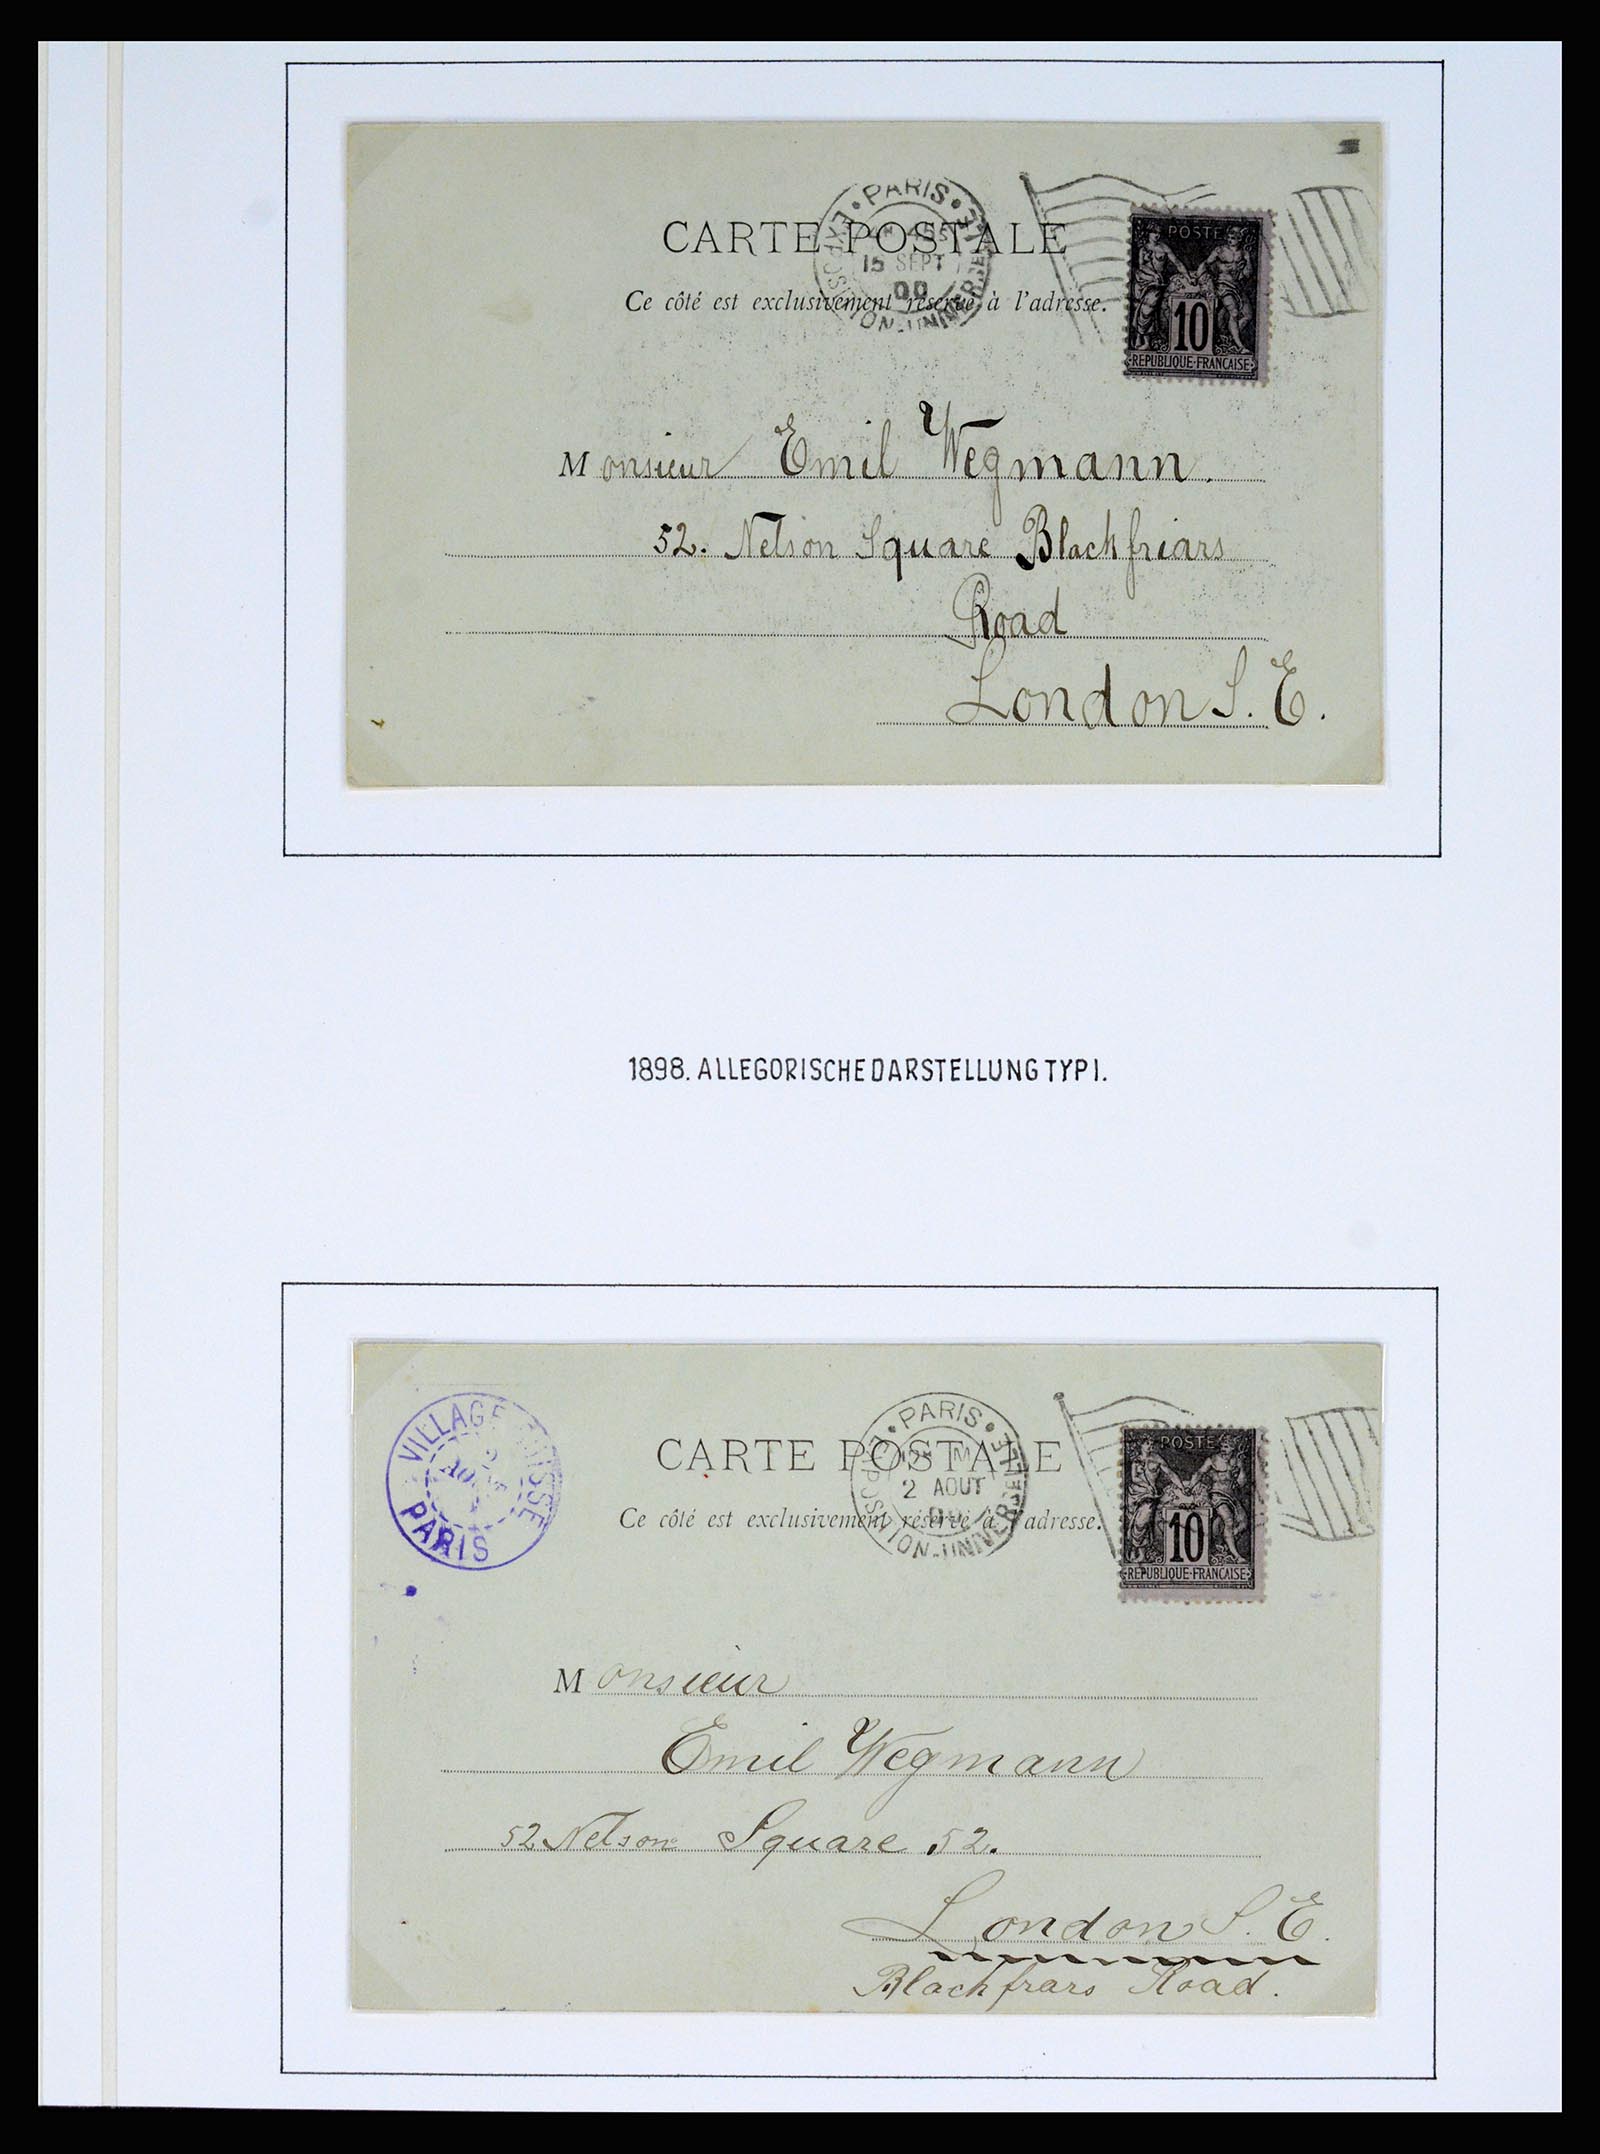 PARIS
EXPOSITION-UNIVERSELLE
15 SEPT
00
CARTE POSTALE
Ce côté est exclusivement réservé à l'adresse.
POSTE
10
REPUBLIQUE-FRANÇAISE
Monsieur Emil Wegmann.
52. Nelson Square Blackfriars
Road
London S.E.
1898. ALLEGORISCHE DARSTELLUNG TYP I.
VILLAGE SUISSE
PARIS
PARIS
EXPOSITION-UNIVERSELLE
2 AOUT
CARTE POSTALE
Ce côté est exclusivement réservé à l'adresse.
POSTE
10
REPUBLIQUE-FRANÇAISE
Monsieur
Emil Wegmann
52 Nelson Square 52.
London S.E.
Blackfrars Road.